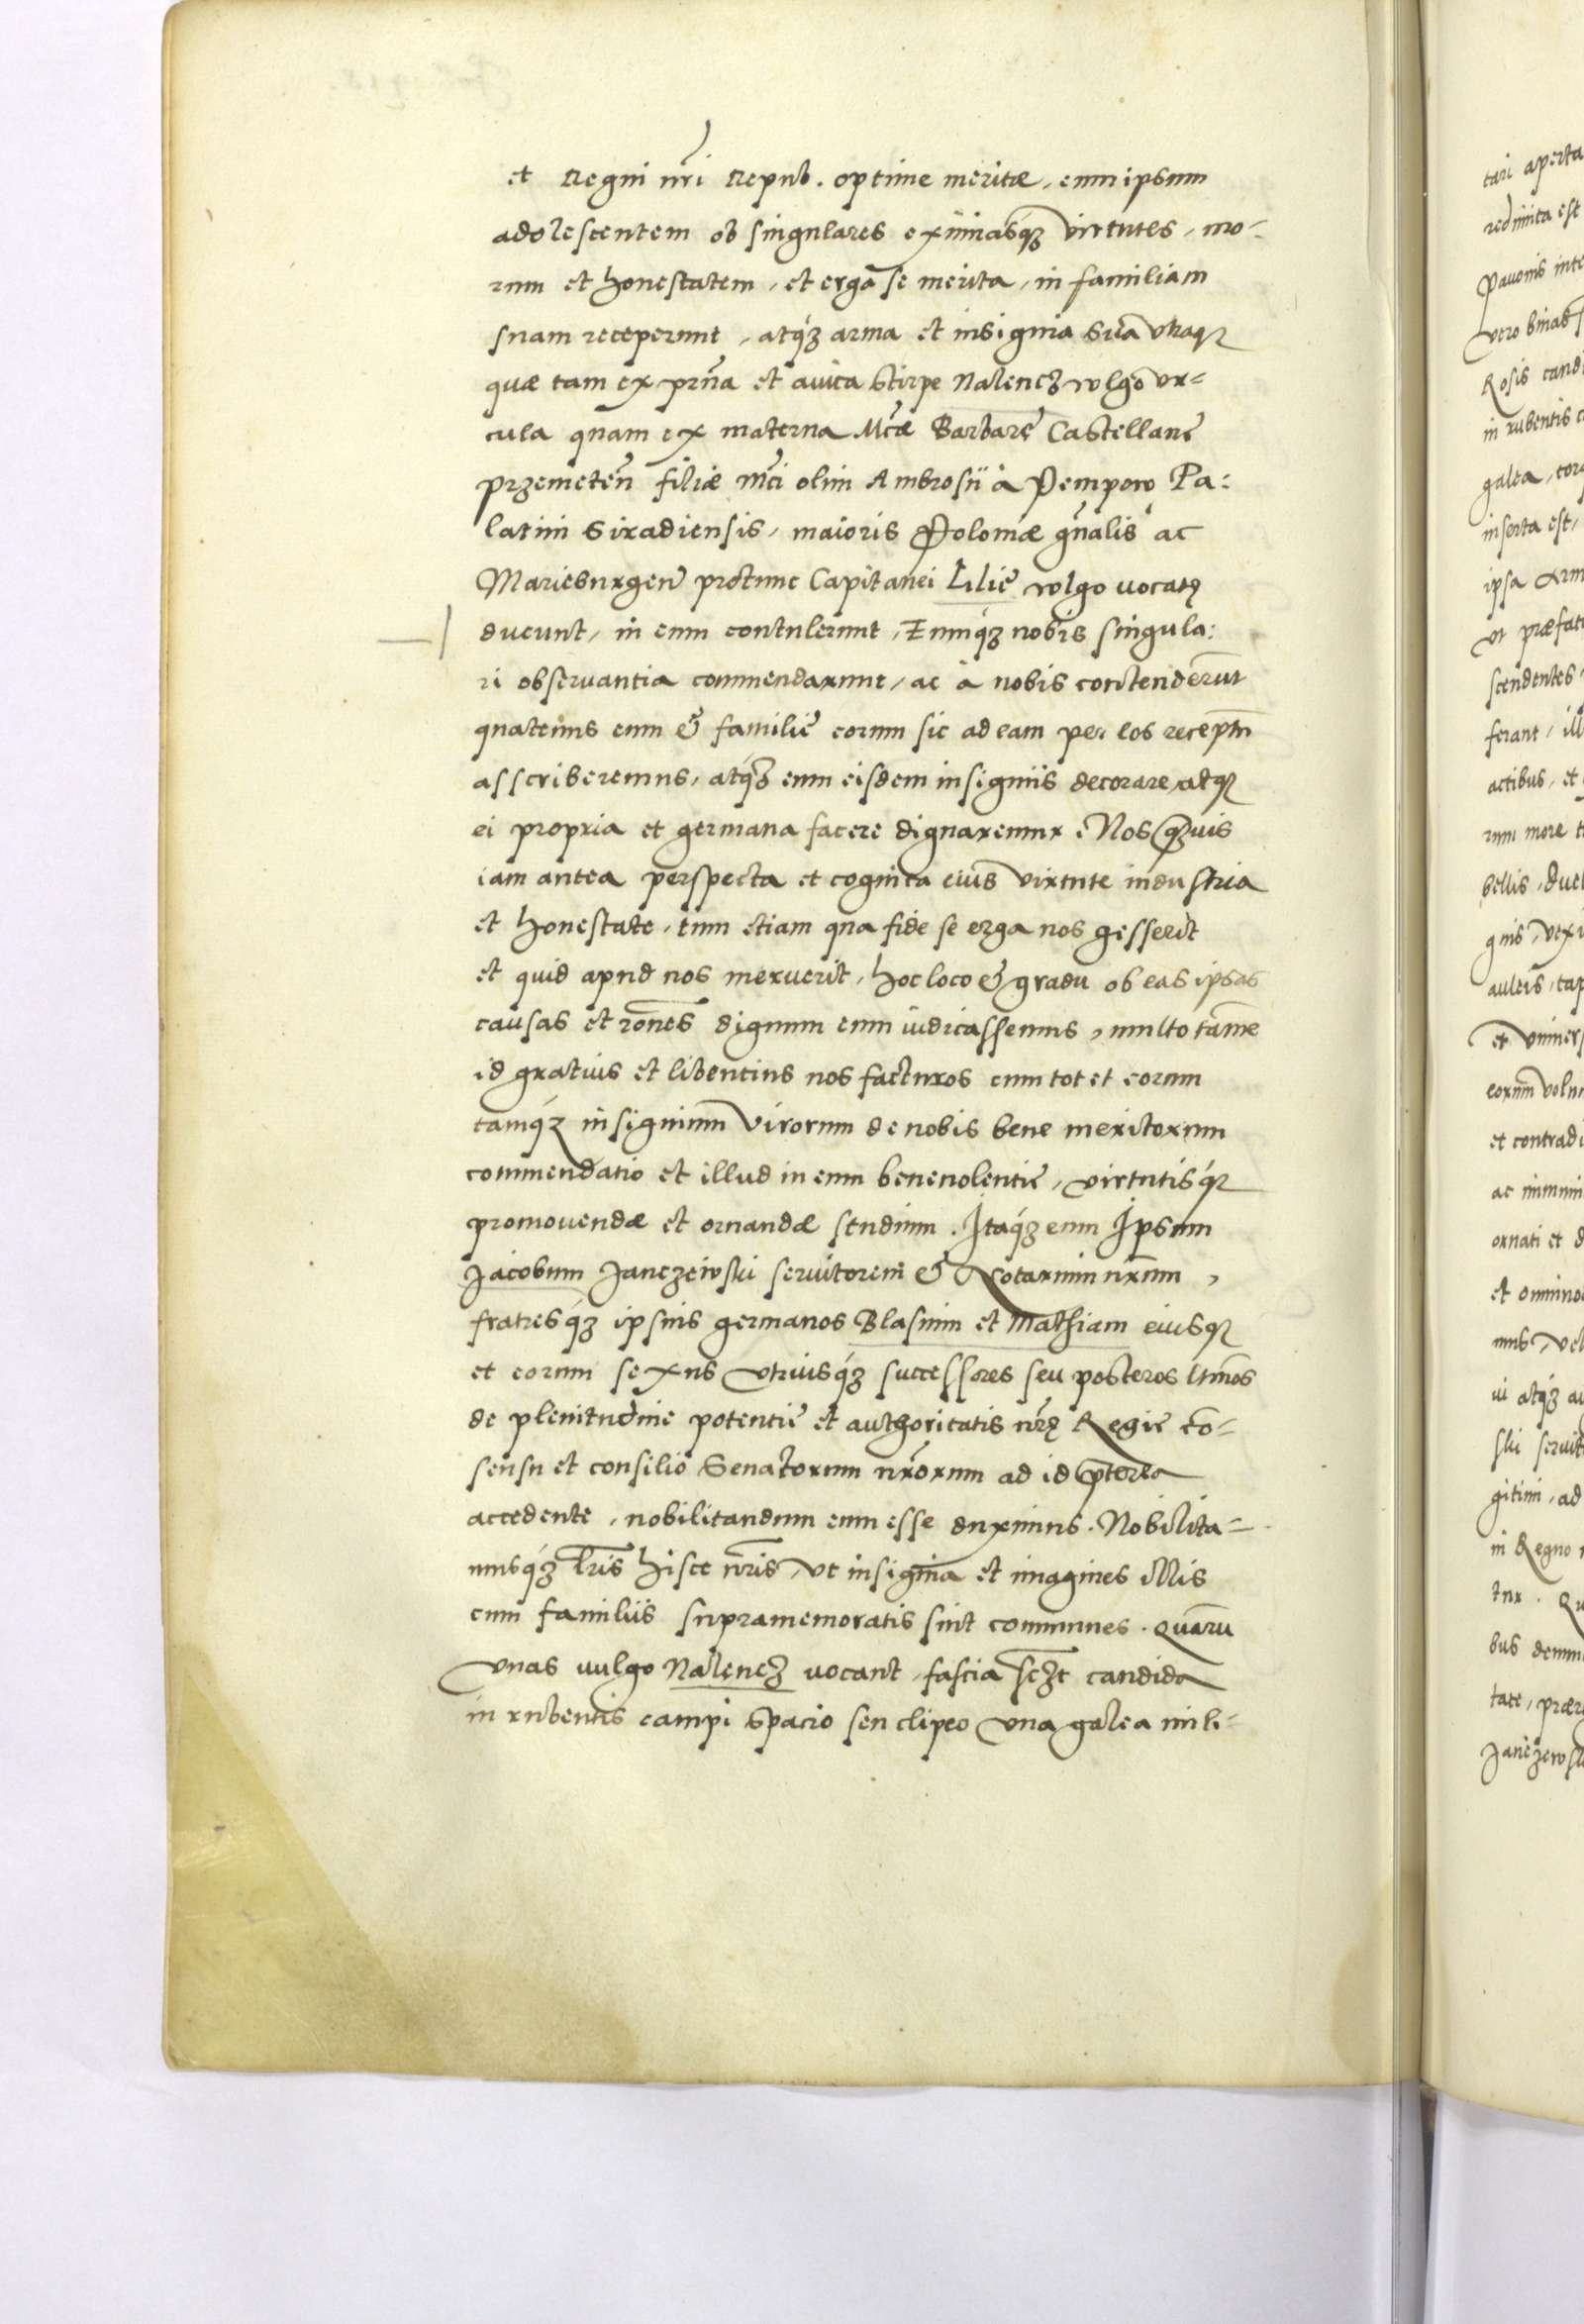 et Regni nr̃i Repub. optime meritæ, eum ipsum
adolescentem ob singulares eximiasq́ꝫ virtutes, mo-
rum et honestatem, et erga se merita, in familiam
suam receperunt, atq́ꝫ arma et insignia sua utraqꝫ
quæ tam ex pr̃na et auita stirpe Nalencz wlgo ur-
cula quam ex materna Mcæ̃ Barbarę Castellanę
Przemeteñ filiæ Mci olim Ambrosii à Pempowo Pa:
latini Siradiensis, maioris Poloniæ gñalis ac
Marieburgeñ protunc Capitanei Lilię wlgo vocatę
ducunt, in eum contulerunt, Eumq́ꝫ nobis singula:
ri obseruantia commendarunt, ac à nobis contenderunt
quatenus eum & familię eorum sic ad eam per eos receptm̃
asscriberemus, atq́ꝫ eum eisdem insigniis decorare, atqꝫ
ei propria et germana facere dignaremur. Nos qꝫuis
iam antea perspecta et cognita eius virtute industria
et honestate, tum etiam qua fide se erga nos gesserit
et quid apud nos meruerit, hoc loco & gradu ob eas ipsas
causas et rones̃ dignum eum iudicassemus, multo tame
id gratius et libentius nos facturos cum tot et eorum
tamq́ꝫ insignium virorum de nobis bene meritorum
commendatio et illud in eum beneuolentię, virtutisq́ꝫ
promouendæ et ornandæ studium. Itaq́ꝫ eum Ipsum
Jacobum Janczewski seruitorem & Notarium nr̃um,
fratresq́ꝫ ipsius germanos Blasium et Mathiam eiusqꝫ
et eorum sexus vtriusq́ꝫ successores seu posteros ltmõs
de plenitudine potentię et authoritatis nr̃ę Regię cõ-
sensu et consilio Senatorum nr̃orum ad id p̃terea
accedente, nobilitandum eum esse duximus. Nobilita-
musq́ꝫ lr̃is hisce nr̃is, ut insignia et imagines illis
cum familiis supramemoratis sint communes. Quarũ
vnas uulgo Nalencz vocant, fascia sczt̃ candida
in rubentis campi spacio seu clipeo vna galea mili-
tari aperta
redimita est
Pauonis inte
vero binas
Rosis candi
in rubentis c
galea, coro
inserta est,
ipsa Arm
vt præfat
scendentes
ferant, ill
actibus, et
rum more t
bellis, duel
gnis, vexi
auleis, tap
et vniuers
eorum volun
et contradi
ac immuni
ornati et d
et omnino
mus, vel
ui atq́ꝫ au
ski seruit
gitimi, ad
in Regno n
tur. Qu
bus demum
tate, præro
Janczewski